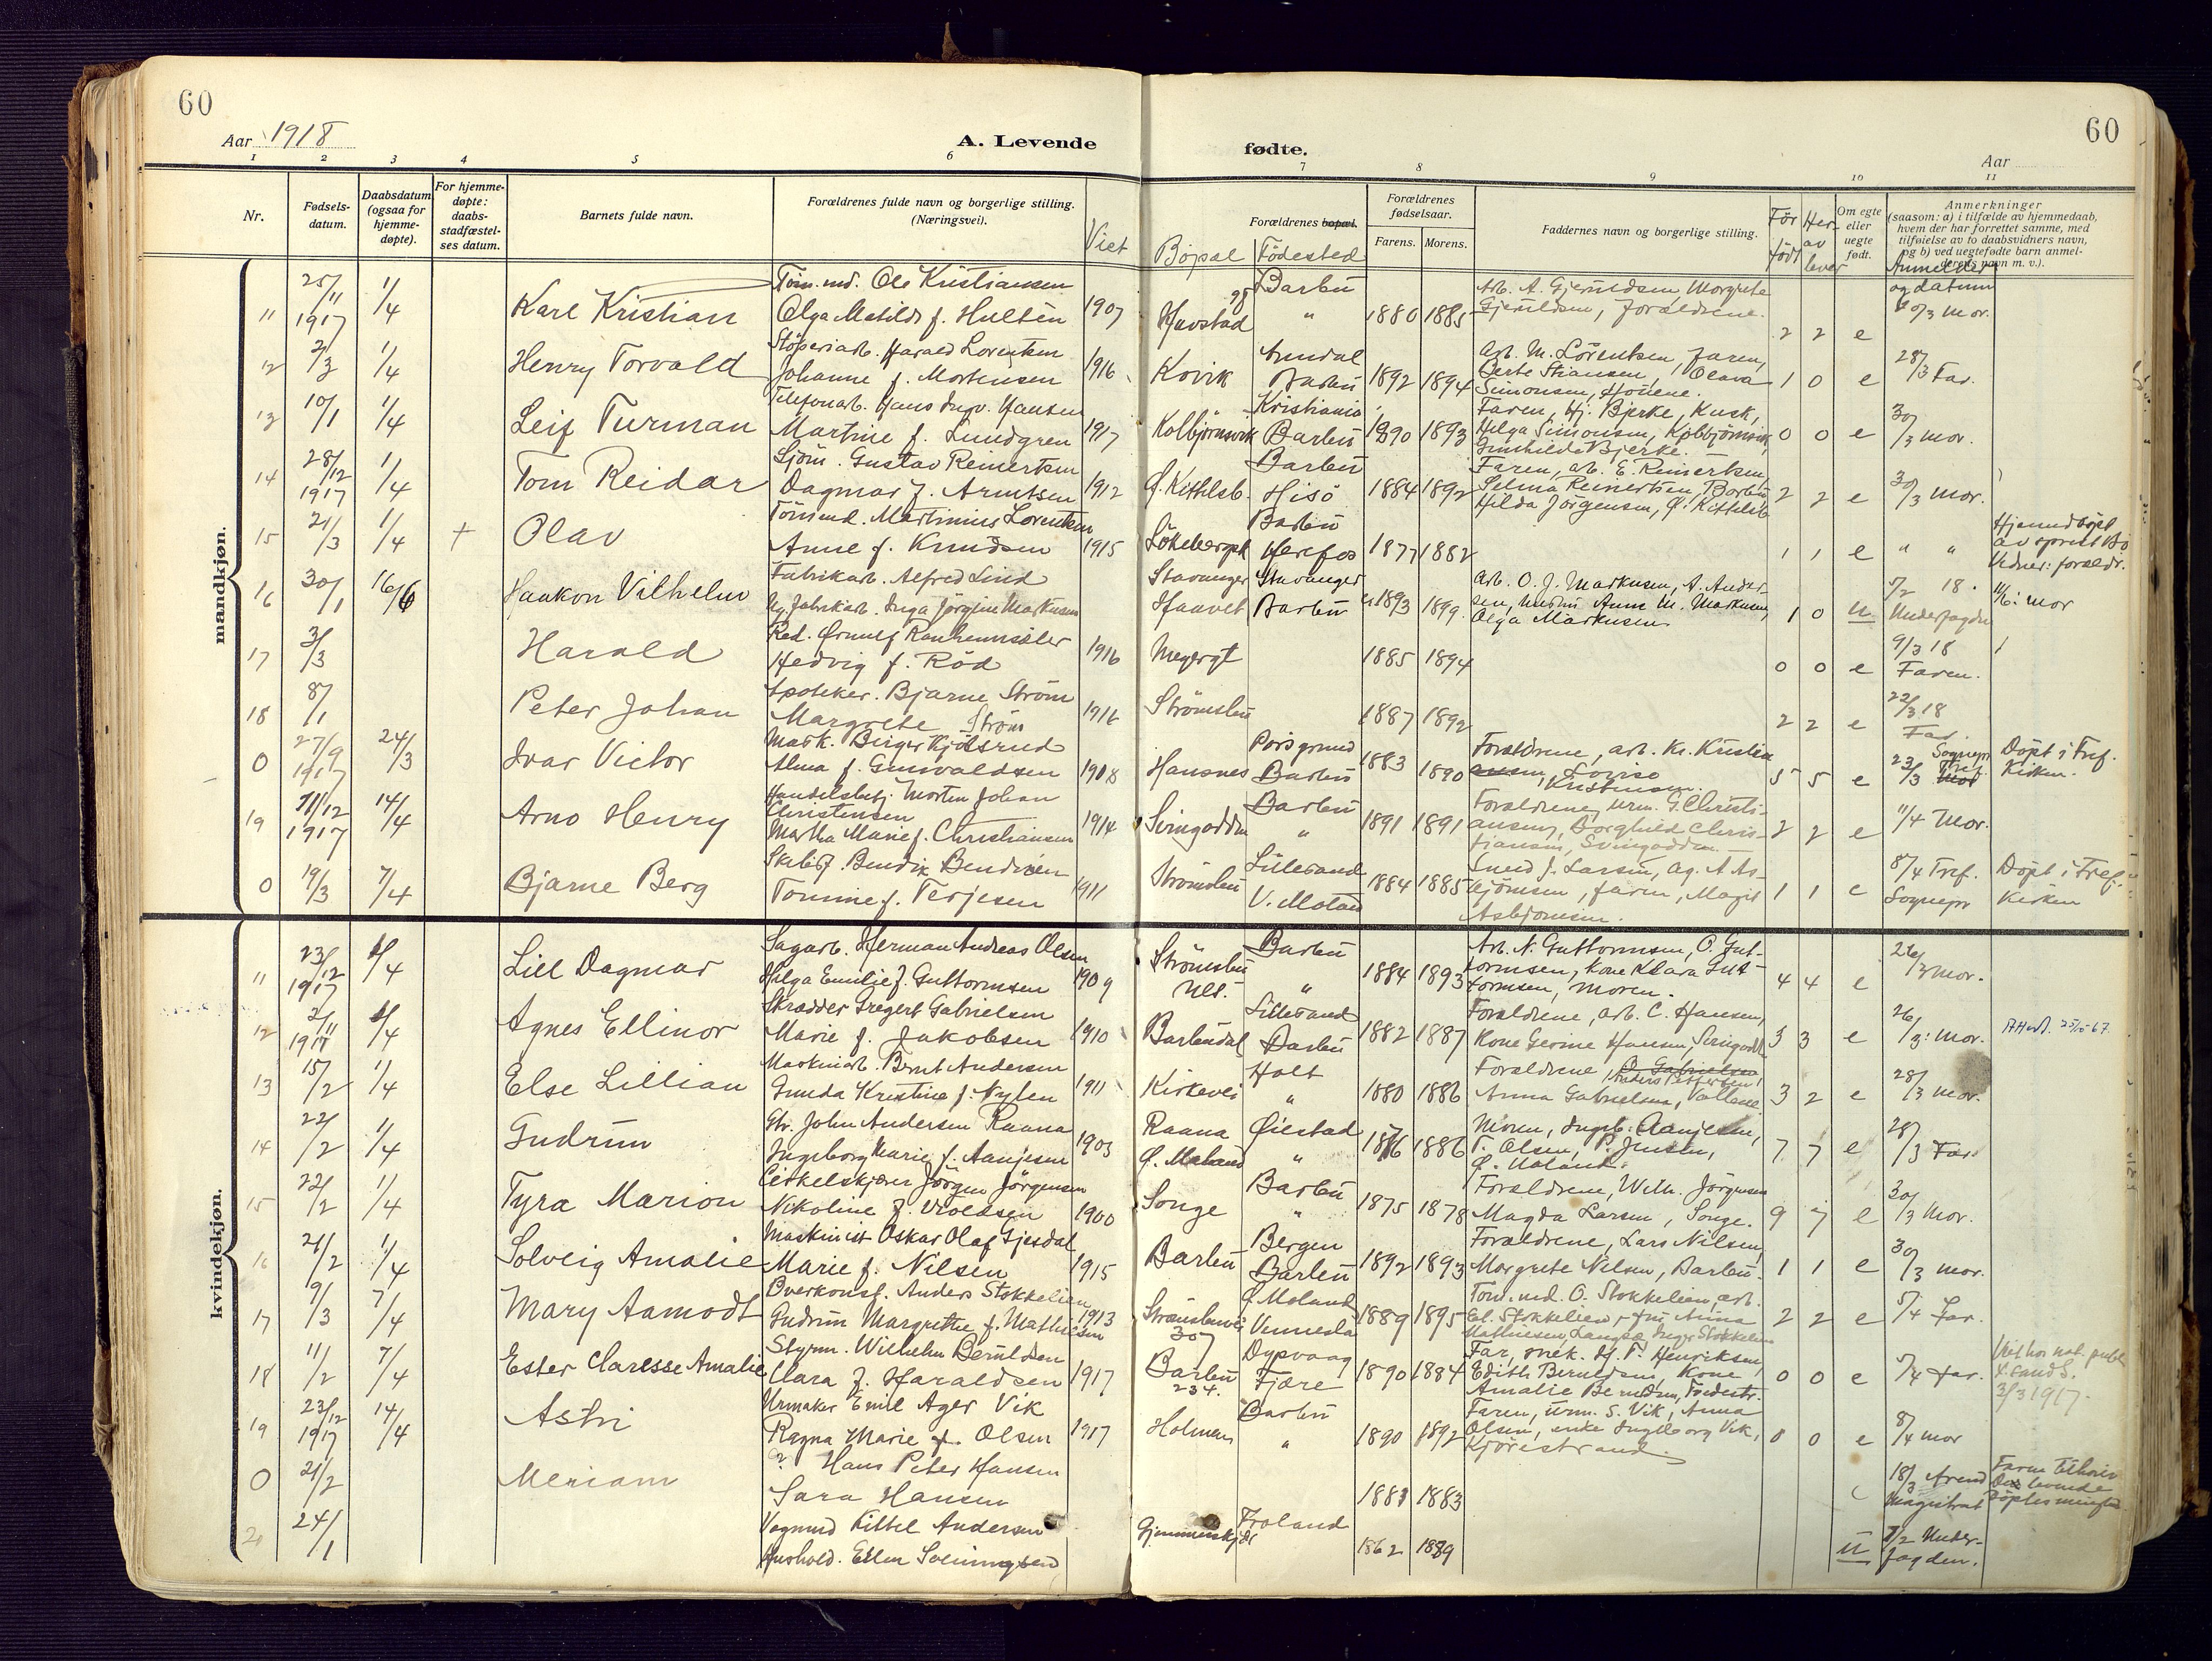 60
60
Aar 1918
A. Levende
fødte.
Aar
1 2 3 4 5 6 7 8 9 10 11
Nr.
Fødsels-
datum.
Daabsdatum
(ogsaa for
hjemme-
døpte).
For hjemme-
døpte:
daabs-
stadfæstel-
ses datum.
Barnets fulde navn.
Forældrenes fulde navn og borgerlige stilling.
(Næringsvei).
Viet
Forældrenes bopæl.
Bopæl Fødested
Forældrenes
fødselsaar.
Farens. Morens.
Faddernes navn og borgerlige stilling.
Før
født
Her-
av
lever
Om egte
eller
uegte
født.
Anmerkninger
(saasom: a) i tilfælde av hjemmedaab,
hvem der har forrettet samme, med
tilføielse av to daabsvidners navn,
og b) ved uegtefødte barn anmel-
derens navn m. v.).
Anmelder
og datum
mandkjøn.
11 25/11 1917 1/4 Karl Kristian
Tøm.md. Ole Kristiansen
Olga Matilde f. Hultén 1907
Havstad Barbu
" 1880 1885
Arb. A. Gjeruldsen, Margrete
Gjeruldsen, Forældrene.
2 2 e 20/3 mor.
12 2/3 1/4 Henry Torvald
Støperiarb. Harald Lorentsen
Johanne f. Mortensen 1916
Kovik Arendal
Barbu 1892 1894
Arb. M. Lorentsen, Faren,
Simonsen,
1 0 e 28/3 Far.
13 10/1 1/4 Leif Turman
Telefonarb. Hans Ingv. Hansen
Martine f. Lundgren 1917
Kolbjørnsvik Kristiania
Barbu 1890 1893
Faren, Hj. Bjerke, Kusk,
Helga Simonsen, Kolbjørnsvik,
Gunhilde Bjerke.
0 0 e 30/3 mor.
14 28/12 1917 1/4 Tom Reidar
Sjøm. Gustav Reinertsen
Dagmar f. Arntsen 1912
Ø. Kittelsb. Barbu
Hisö 1884 1892
Faren, arb. E. Reinertsen,
Selma Reinertsen, Barbu,
Hilda Jörgensen, Ø. Kittelsb
2 2 e 30/3 mor.
15 21/3 1/4 + Olav
Tømmd. Martinius Lorentsen
Anne f. Knudsen 1915
Barbu
Herefos 1877 1882
1 1 e " "
Hjemmedöpt
av sprest Bö
Vidner: foreldr.
16 30/1 16/6 Haakon Vilhelm
Fabrikarb. Alfred Lind
Ug. fabrikarb. Inga Jörgine Markusen
Stavanger Stavanger
Haavet Barbu 1893 1899
Arb. O. J. Markusen, A. Ander-
sen, Anne M. Markusen,
Olga Markusen
1 0 u 5/2 18. 11/6: mor
Underfogden
17 3/3 Harald
Red. Ørnulf Ranheimsæter
Hedvig f. Rød 1916
1885 1894
0 0 e 9/3 18
Faren.
18 8/1 Peter Johan
Apoteker. Bjarne Strøm
Margrete Strøm 1916
Strømsbu
1887 1892
2 2 e 22/3 18
Far.
0 27/9 1917 24/3 Ivar Victor
Mask. Birger Kjølsrud
Alma f. Gunvaldsen 1918
Hansnes Porsgrund
Barbu 1883 1890
Forældrene, arb. Kr. Kristia
ansen, Lovise
Kristensen.
5 5 e 23/3 Sognepr
Tref.
Døpt i Tref.
Kirken.
19 11/12 1917 14/4 Arno Henry
Handelsbetj. Morten Johan
Christensen
Martha Marie f. Christiansen 1914
Svinodden Barbu
" 1891 1891
Forældrene, urm. G. Christi-
ansen, Borghild Chris-
tiansen, Svinodden
2 2 e 11/4 Mor.
0 19/3 7/4 Bjarne Berg
Bendik Bendiksen
Tomine f. Terjesen 1911
Strømsbu Lillesand
V. Moland 1884 1885
Smed J. Larsen, Ag. A As-
björnsen, faren, Magit
Asbjornsen.
1 1 e 8/4 Tref.
Sognepr
Döpt i Tref.
Kirken
kvindekjøn.
11 23/12 1917 1/4 Lill Dagmar
Sagarb. Herman Andreas Olsen
Helga Emilie f. Guttormsen 1909
Strømsbu Barbu
" 1884 1893
Arb. N. Guttormsen, O. Gut-
tormsen, Kone Klara Gut-
tormsen, Moren.
4 4 e 26/3 mor.
12 2/11 1917 1/4 Agnes Ellinor
Skrædder Gregert Gabrielsen
Marie f. Jakobsen 1910
Barbudal Lillesand
Barbu 1882 1887
Forældrene, arb. C. Hansen,
Kone Gerine Hansen,
3 3 e 26/3: mor.
13 15/2 1/4 Else Lillian
Maskinarb. Bernt Andersen
Gunda Kristine f. Nylen 1911
Kirkevei Holt
" 1880 1886
Forældrene,
Anders Pettersen,
Anna Gabrielsen,
3 2 e 28/3 mor.
14 22/2 1/4 Gudrun
Gbr. John Andersen Raana
Ingeborg Marie f. Aanjesen 1903
Raana Øiestad
Ø. Moland " 1876 1886
Moren, Ingeb. Aanjesen,
T. Olsen, P. Jensen,
Ø. Moland.
7 7 e 28/3 Far
15 22/2 1/4 Tyra Marion
Cirkelskjærer Jörgen Jörgensen
Nikoline f. 1900
Songe Barbu
" 1875 1878
Forældrene, Wilh. Jörgensen
Magda Larsen, Songe.
9 7 e 30/3 Mor.
16 21/2 1/4 Solveig Amalie
Maskinist Oskar Olaf Gjesdal
Marie f. Nilsen 1915
Barbu Bergen
Barbu 1892 1893
Forældrene, Lars Nilsen,
Margrete Nilsen, Barbu.
1 1 e 30/3 mor.
17 9/3 7/4 Mary Aamodt
Overkonst. Anders Stokkelien
Gudrun Margrethe f. Mathisen 1913
Strømsbuvei
30 Ø. Moland
Vennesla 1889 1895
Tøm.md. O. Stokkelien, arb.
El. Stokkelien, fru Anna
Mathiesen, Langsæ, Inger Stokkelien
2 2 e 5/4 Far.
18 11/2 7/4 Ester Claresse Amalie
Styrm. Wilhelm Beruldsen
Clara f. Haraldsen 1917
Barbu
234. Dypvaag
Fjære 1890 1884
Far, snek. H. T. Henriksen,
Edith Beruldsen, Kone
Amalie Beruldsen,
0 0 e 5/4 Far.
Viet hos not. publ.
Kr.sand S.
3/3 1917.
19 23/12 1917 14/4 Astri
Urmaker Emil Ager Vik
Ragna Marie f. Olsen 1917
Holmen Barbu
" 1890 1892
Faren, urm. S. Vik, Anna
Olsen, enke Ingeborg Vik,
Kjørestrand.
0 0 e 8/4 mor
0 21/2 Meriam
Hans Peter Hansen
Sara Hansen
1881 1883
18/3 Arend
Magistrat
Faren tilhører
De levende
20 24/1
Vognmd Kittel Andersen
Hushold. Ellen
Froland
1862 1889
u 7/2 Under-
fogden.